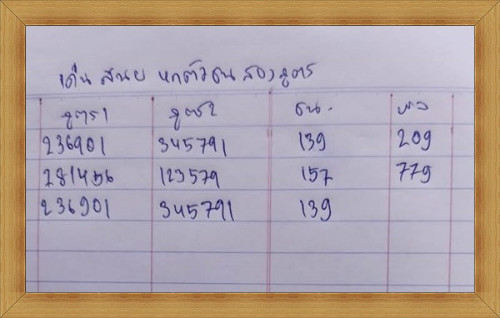 เดิน สนย หกตัวชน สองสูตร
สูตร1 สูตร2 ชน.
236901 345791 139 209
281456 123579 157 779
236901 345791 139